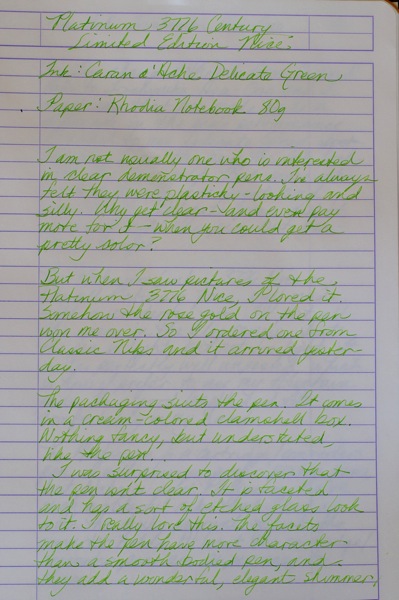 Platinum 3776 Century
Limited Edition "Nice"
Ink: Caran d'Ache Delicate Green
Paper: Rhodia Notebook 80g
I am not usually one who is interested
in clear demonstrator pens. I've always
felt they were plasticky-looking and
silly. Why get clear - and even pay
more for it - when you could get a
pretty color?
But when I saw pictures of the
Platinum 3776 Nice, I loved it.
Somehow the rose gold on the pen
won me over. So I ordered one from
Classic Nibs and it arrived yester-
day.
The packaging suits the pen. It comes
in a cream-colored clamshell box.
Nothing fancy, but understated,
like the pen.
I was surprised to discover that
the pen isn't clear. It is faceted
and has a sort of etched glass look
to it. I really love this. The facets
make the pen have more character
than a smooth bodied pen, and
they add a wonderful, elegant shimmer,